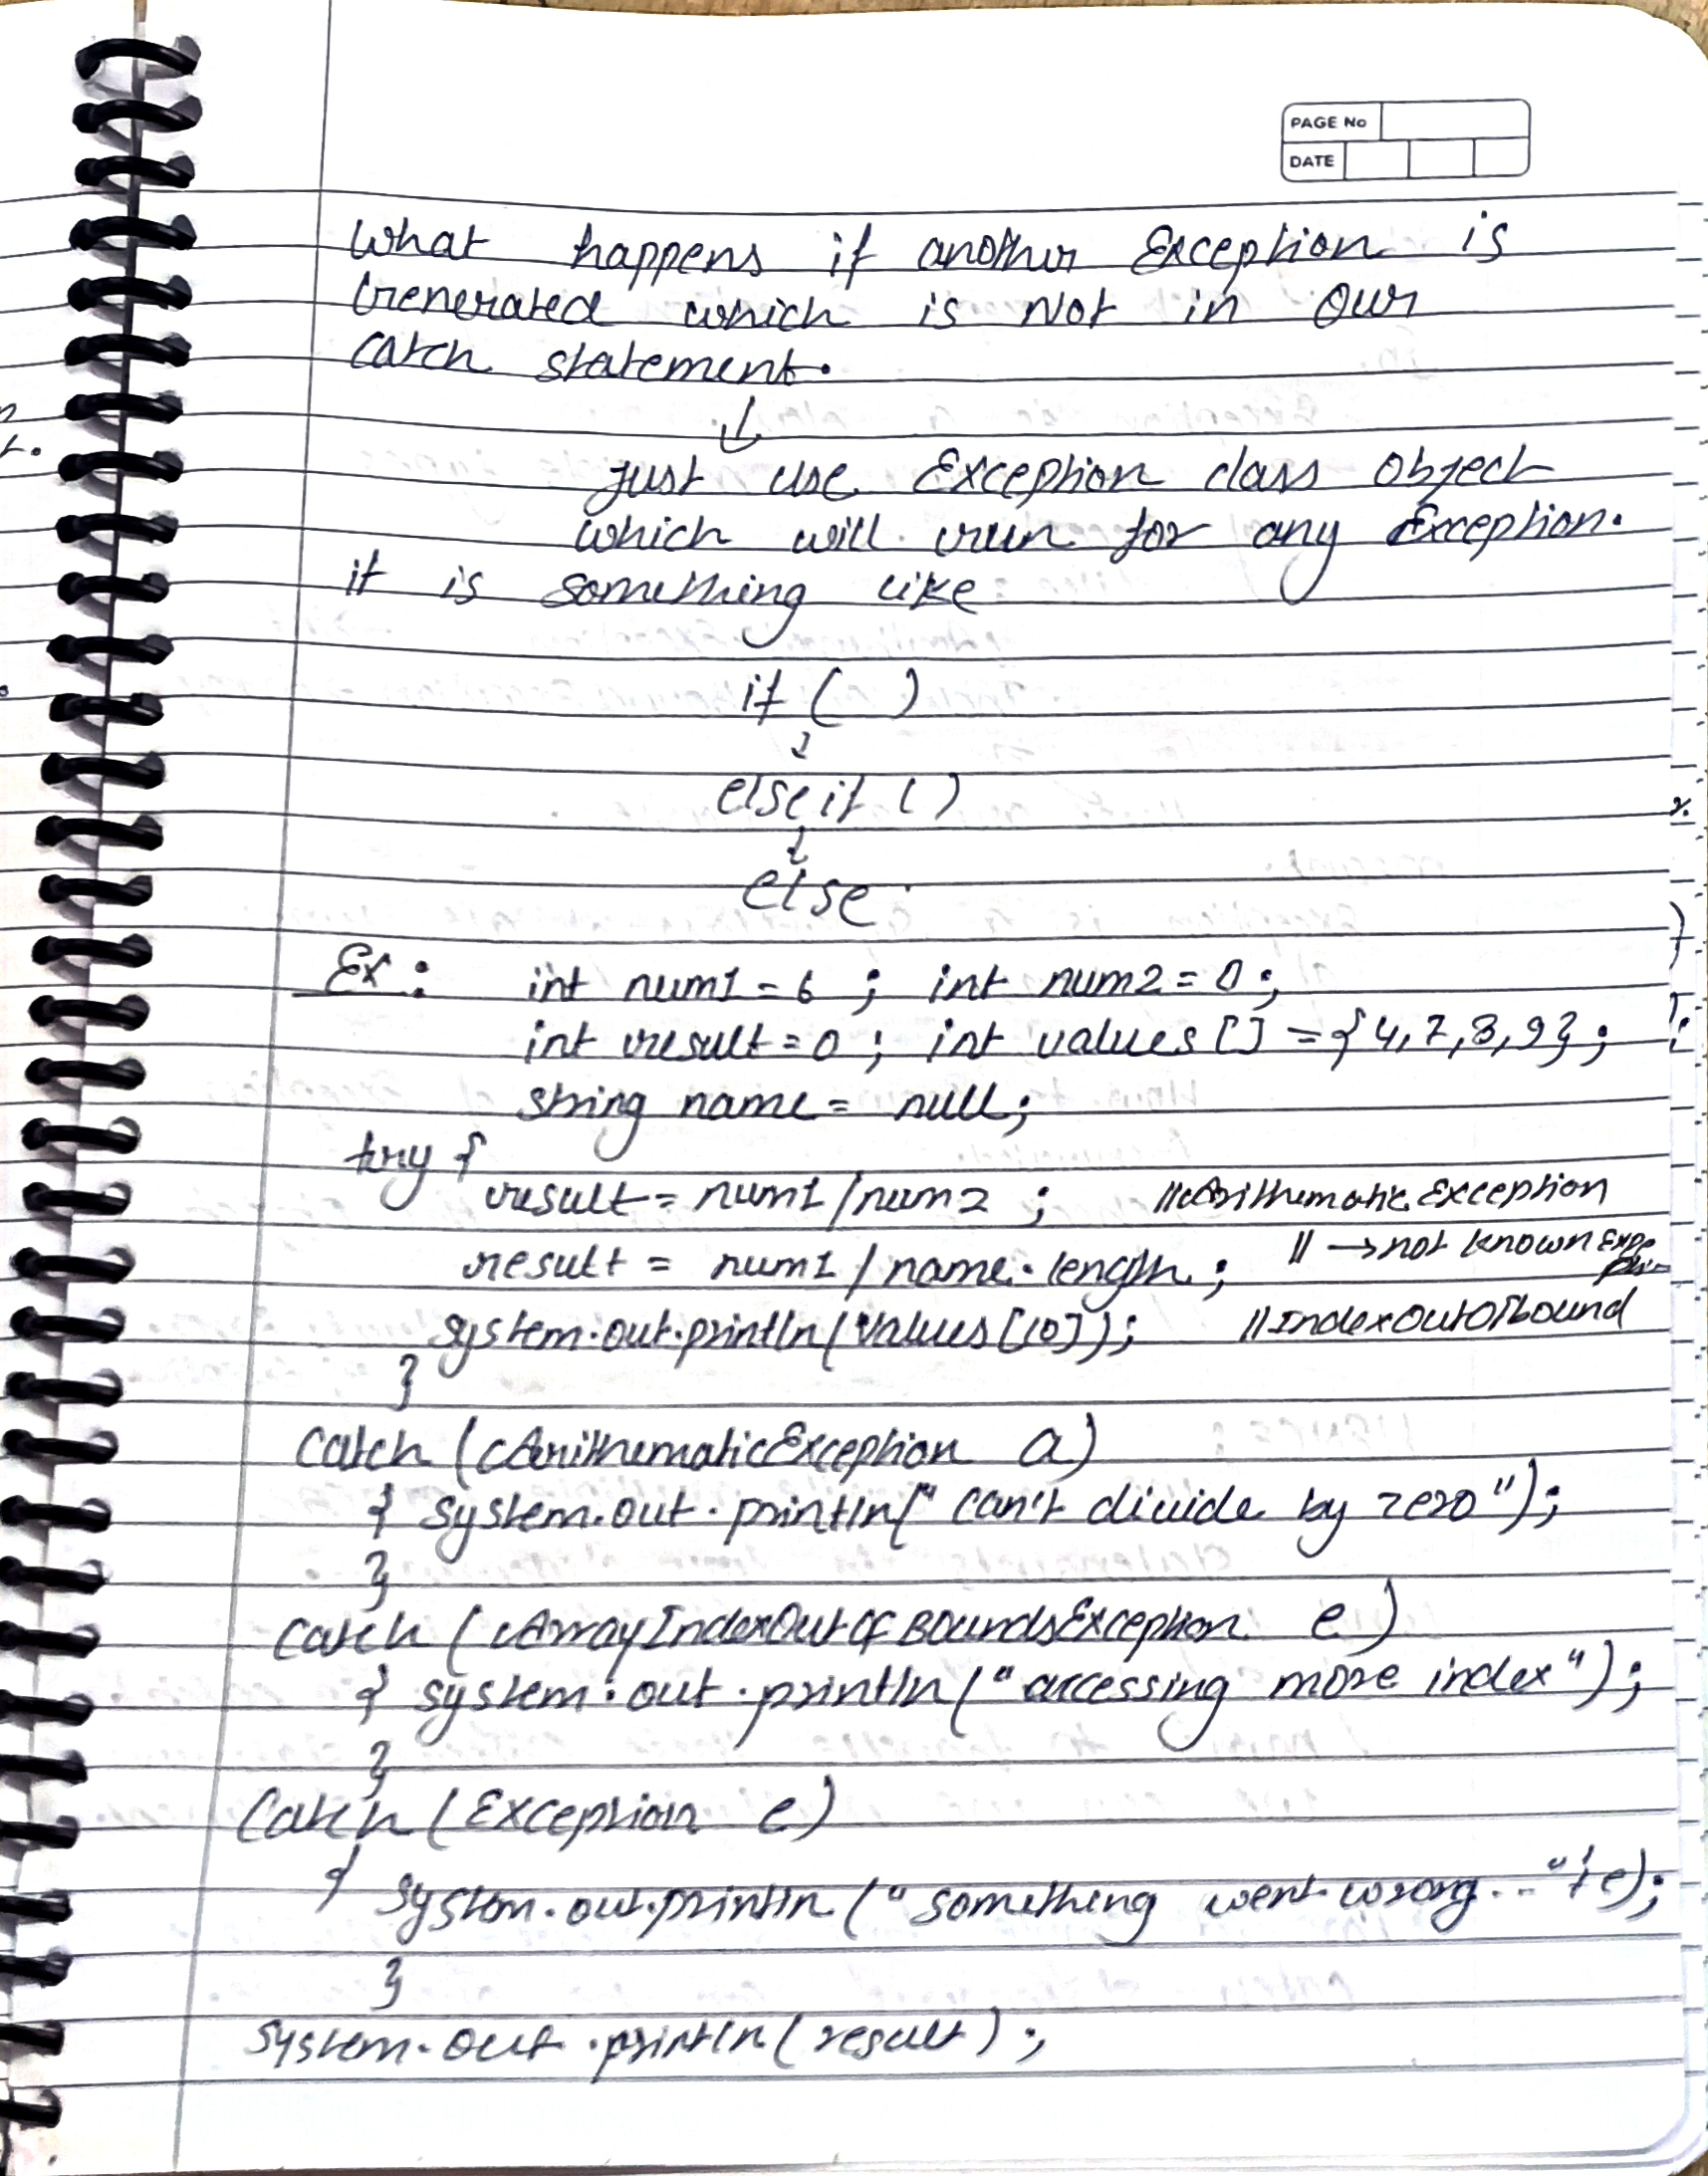 PAGE No
DATE
What happens if another Exception is
Generated which is Not in our
catch statement.
↓
Just use Exception class Object
which will run for any Exception.
it is something like
if ( )
↓
else if ( )
↓
else
Ex: int num1 = 6 ; int num2 = 0 ;
int result = 0 ; int values [] = {4,7,8,9} ;
string name = null;
try {
result = num1 / num2 ; //Arithematic Exception
result = num1 / name.length ; // → not known Exception
system.out.println(values[10]); //IndexOutOfbound
}
catch (ArithematicException a)
{ system.out.println(" can't divide by zero");
}
catch (ArrayIndexOutOfBoundsException e)
{ system.out.println("accessing more index");
}
catch (Exception e)
{ system.out.println("something went wrong..."+e);
}
system.out.println(result);